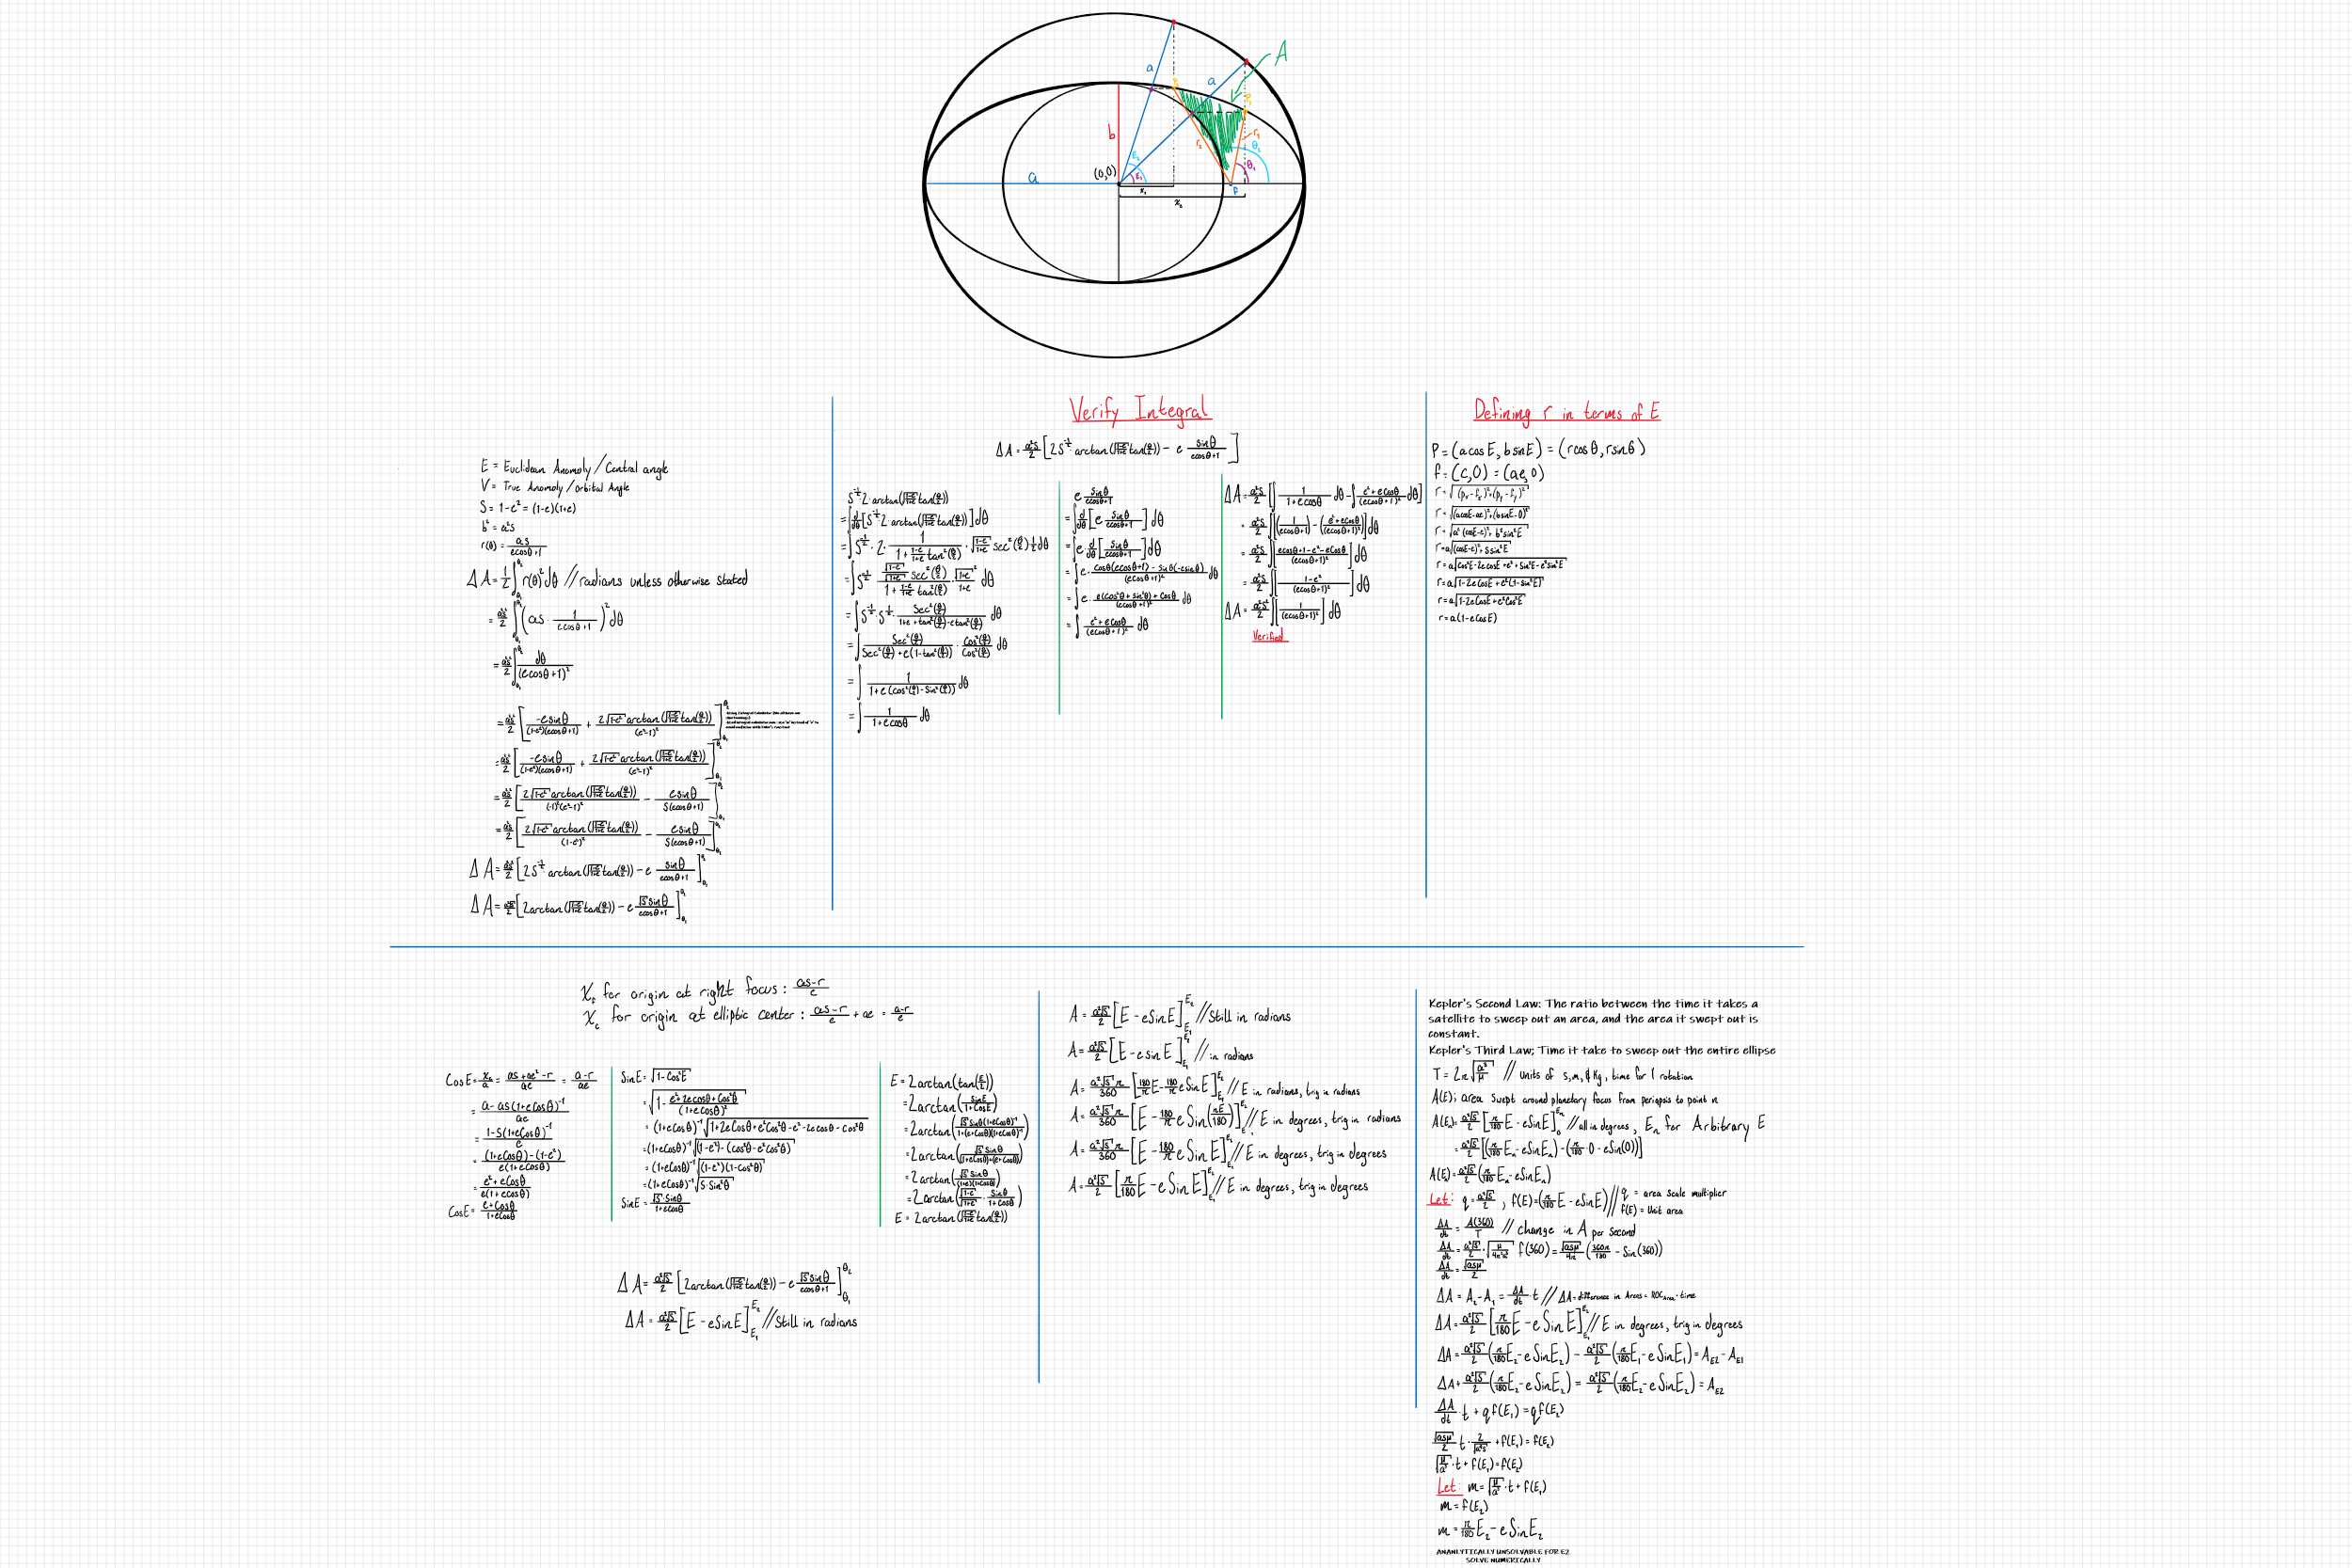 A
a
a
P₂
P₁
b
r₁
r₂
θ₂
θ₁
E₂
E₁
(0,0)
a
F
x₁
x₂
E = Euclidean Anomoly / Central angle
V = True Anomoly / orbital Angle
S = 1-e² = (1-e)(1+e)
b² = a²s
r(θ) = as/(ecosθ+1)
ΔA = 1/2 ∫_θ₁^θ₂ r(θ)² dθ // radians unless otherwise stated
= a²s²/2 ∫_θ₁^θ₂ (as · 1/(ecosθ+1))² dθ
= a²s²/2 ∫_θ₁^θ₂ dθ/(ecosθ+1)²
= a²s²/2 [-esinθ/((1-e²)(ecosθ+1)) + 2√(1-e²) arctan(√((1-e)/(1+e)) tan(θ/2))/(e²-1)²]_θ₁^θ₂
= a²s²/2 [-esinθ/((1-e²)(ecosθ+1)) + 2√(1-e²) arctan(√((1-e)/(1+e)) tan(θ/2))/(e²-1)²]_θ₁^θ₂
= a²s²/2 [2√(1-e²) arctan(√((1-e)/(1+e)) tan(θ/2))/((-1)²(e²-1)²) - esinθ/(S(ecosθ+1))]_θ₁^θ₂
= a²s²/2 [2√(1-e²) arctan(√((1-e)/(1+e)) tan(θ/2))/(1-e²)² - esinθ/(S(ecosθ+1))]_θ₁^θ₂
ΔA = a²s/2 [2S^(-1/2) arctan(√((1-e)/(1+e)) tan(θ/2)) - e sinθ/(ecosθ+1)]_θ₁^θ₂
ΔA = a²√s/2 [2arctan(√((1-e)/(1+e)) tan(θ/2)) - e √s sinθ/(ecosθ+1)]_θ₁^θ₂
Verify Integral
ΔA = a²s/2 [2S^(-1/2) arctan(√((1-e)/(1+e)) tan(θ/2)) - e sinθ/(ecosθ+1)]
S^(-1/2) 2·arctan(√((1-e)/(1+e)) tan(θ/2))
= ∫ d/dθ [S^(-1/2) 2·arctan(√((1-e)/(1+e)) tan(θ/2))] dθ
= ∫ S^(-1/2) · 2 · 1/(1+(1-e)/(1+e) tan²(θ/2)) · √((1-e)/(1+e)) sec²(θ/2) 1/2 dθ
= ∫ S^(-1/2) (√(1-e)/√(1+e) sec²(θ/2))/(1+(1-e)/(1+e) tan²(θ/2)) · √(1+e)²/(1+e) dθ
= ∫ S^(-1/2) · S^(1/2) · Sec²(θ/2)/(1+e+tan²(θ/2)-etan²(θ/2)) dθ
= ∫ Sec²(θ/2)/(Sec²(θ/2)+e(1-tan²(θ/2))) · Cos²(θ/2)/Cos²(θ/2) dθ
= ∫ 1/(1+e(cos²(θ/2)-Sin²(θ/2))) dθ
= ∫ 1/(1+ecosθ) dθ
e sinθ/(ecosθ+1)
= ∫ d/dθ [e sinθ/(ecosθ+1)] dθ
= ∫ e d/dθ [sinθ/(ecosθ+1)] dθ
= ∫ e · (cosθ(ecosθ+1) - sinθ(-esinθ))/(ecosθ+1)² dθ
= ∫ e · (e(cos²θ+sin²θ)+cosθ)/(ecosθ+1)² dθ
= ∫ (e²+ecosθ)/(ecosθ+1)² dθ
ΔA = a²s/2 [∫ 1/(1+ecosθ) dθ - ∫ (e²+ecosθ)/(ecosθ+1)² dθ]
= a²s/2 ∫[(1/(ecosθ+1)) - ((e²+ecosθ)/(ecosθ+1)²)] dθ
= a²s/2 ∫[(ecosθ+1-e²-ecosθ)/(ecosθ+1)²] dθ
= a²s/2 ∫[(1-e²)/(ecosθ+1)²] dθ
ΔA = a²s²/2 ∫[1/(ecosθ+1)²] dθ
Verified
Defining r in terms of E
P = (acosE, bsinE) = (rcosθ, rsinθ)
f = (c,0) = (ae,0)
r = √((pₓ-fₓ)²+(p_y-f_y)²)
r = √((acosE-ae)²+(bsinE-0)²)
r = √(a²(cosE-e)²+b²sin²E)
r = a√((cosE-e)²+Ssin²E)
r = a√(cos²E-2ecosE+e²+sin²E-e²sin²E)
r = a√(1-2ecosE+e²(1-sin²E))
r = a√(1-2ecosE+e²cos²E)
r = a(1-ecosE)
X_f for origin at right focus: (as-r)/e
X_c for origin at elliptic center: (as-r)/e + ae = (a-r)/e
CosE = x_c/a = (as+ae²-r)/ae = (a-r)/ae
= (a-as(1+ecosθ)⁻¹)/ae
= (1-S(1+ecosθ)⁻¹)/e
= ((1+ecosθ)-(1-e²))/(e(1+ecosθ))
= (e²+ecosθ)/(e(1+ecosθ))
CosE = (e+cosθ)/(1+ecosθ)
SinE = √(1-Cos²E)
= √(1-(e²+2ecosθ+cos²θ)/(1+ecosθ)²)
= (1+ecosθ)⁻¹√(1+2ecosθ+e²cos²θ-e²-2ecosθ-cos²θ)
= (1+ecosθ)⁻¹√((1-e²)-(cos²θ-e²cos²θ))
= (1+ecosθ)⁻¹√((1-e²)(1-cos²θ))
= (1+ecosθ)⁻¹√(S·Sin²θ)
SinE = √S·Sinθ/(1+ecosθ)
E = 2arctan(tan(E/2))
= 2arctan(SinE/(1+CosE))
= 2arctan(√S sinθ(1+ecosθ)⁻¹/(1+(e+cosθ)(1+ecosθ)⁻¹))
= 2arctan(√S sinθ/((1+ecosθ)+(e+cosθ)))
= 2arctan(√S sinθ/((1+e)(1+cosθ)))
= 2arctan(√(1-e)/√(1+e) · sinθ/(1+cosθ))
E = 2arctan(√((1-e)/(1+e)) tan(θ/2))
ΔA = a²√S/2 [2arctan(√((1-e)/(1+e)) tan(θ/2)) - e √S sinθ/(ecosθ+1)]_θ₁^θ₂
ΔA = a²√S/2 [E - eSinE]_E₁^E₂ // Still in radians
A = a²√S/2 [E - eSinE]_E₁^E₂ // Still in radians
A = a²√S/2 [E - esinE]_E₁^E₂ // in radians
A = a²√S π/360 [180/π E - 180/π eSinE]_E₁^E₂ // E in radians, trig in radians
A = a²√S π/360 [E - 180/π eSin(πE/180)]_E₁^E₂ // E in degrees, trig in radians
A = a²√S π/360 [E - 180/π eSinE]_E₁^E₂ // E in degrees, trig in degrees
A = a²√S/2 [π/180 E - eSinE]_E₁^E₂ // E in degrees, trig in degrees
Kepler's Second Law: The ratio between the time it takes a
satellite to sweep out an area, and the area it swept out is
constant.
Kepler's Third Law; Time it take to sweep out the entire ellipse
T = 2π√(a³/μ) // units of s,m,&Kg, time for 1 rotation
A(E); area swept around planetary focus from periapsis to point n
A(Eₙ) = a²√S/2 [π/180 E - eSinE]_0^Eₙ // all in degrees, Eₙ for Arbitrary E
= a²√S/2 [(π/180 Eₙ - eSinEₙ) - (π/180 · 0 - eSin(0))]
A(Eₙ) = a²√S/2 (π/180 Eₙ - eSinEₙ)
Let: q = a²√S/2, f(E) = (π/180 E - eSinE) // q = area scale multiplier
f(E) = Unit area
ΔA/dt = A(360)/T // change in A per second
ΔA/dt = a²√S/2 · √(μ/4π²a³) f(360) = √(asμ)/4π (360π/180 - Sin(360))
ΔA/dt = √(asμ)/2
ΔA = A₂-A₁ = ΔA/dt · t // ΔA = difference in Areas = ROC_Area · time
ΔA = a²√S/2 [π/180 E - eSinE]_E₁^E₂ // E in degrees, trig in degrees
ΔA = a²√S/2 (π/180 E₂ - eSinE₂) - a²√S/2 (π/180 E₁ - eSinE₁) = A_E2 - A_E1
ΔA + a²√S/2 (π/180 E₂ - eSinE₂) = a²√S/2 (π/180 E₂ - eSinE₂) = A_E2
ΔA/dt · t + qf(E₁) = qf(E₂)
√(asμ)/2 t · 2/√(a⁴s) + f(E₁) = f(E₂)
√(μ/a³) · t + f(E₁) = f(E₂)
Let: m = √(μ/a³) · t + f(E₁)
m = f(E₂)
m = π/180 E₂ - eSinE₂
ANANLYTICALLY UNSOLVABLE FOR E2
SOLVE NUMERICALLY